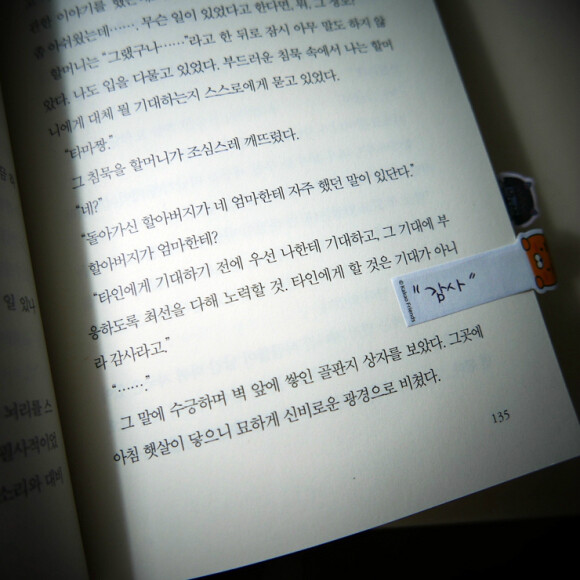 관한 이야기를 했는데
좀 아쉬웠는데……. 무슨 일이 있었다고 한다면, 뭐, 그 정도?
할머니는 “그랬구나……”라고 한 뒤로 잠시 아무 말도 하지 않
았다. 나도 입을 다물고 있었다. 부드러운 침묵 속에서 나는 할머
니에게 대체 뭘 기대하는지 스스로에게 묻고 있었다.
“타마짱.”
그 침묵을 할머니가 조심스레 깨뜨렸다.
“네?”
“돌아가신 할아버지가 네 엄마한테 자주 했던 말이 있단다.”
할아버지가 엄마한테?
“타인에게 기대하기 전에 우선 나한테 기대하고, 그 기대에 부
응하도록 최선을 다해 노력할 것. 타인에게 할 것은 기대가 아니
라 감사라고.”
“…….”
그 말에 수긍하며 벽 앞에 쌓인 골판지 상자를 보았다. 그곳에
아침 햇살이 닿으니 묘하게 신비로운 광경으로 비쳤다.
135
© Kakao Friends
"감사"
일 있나
뇌리를 스
소리와 대비